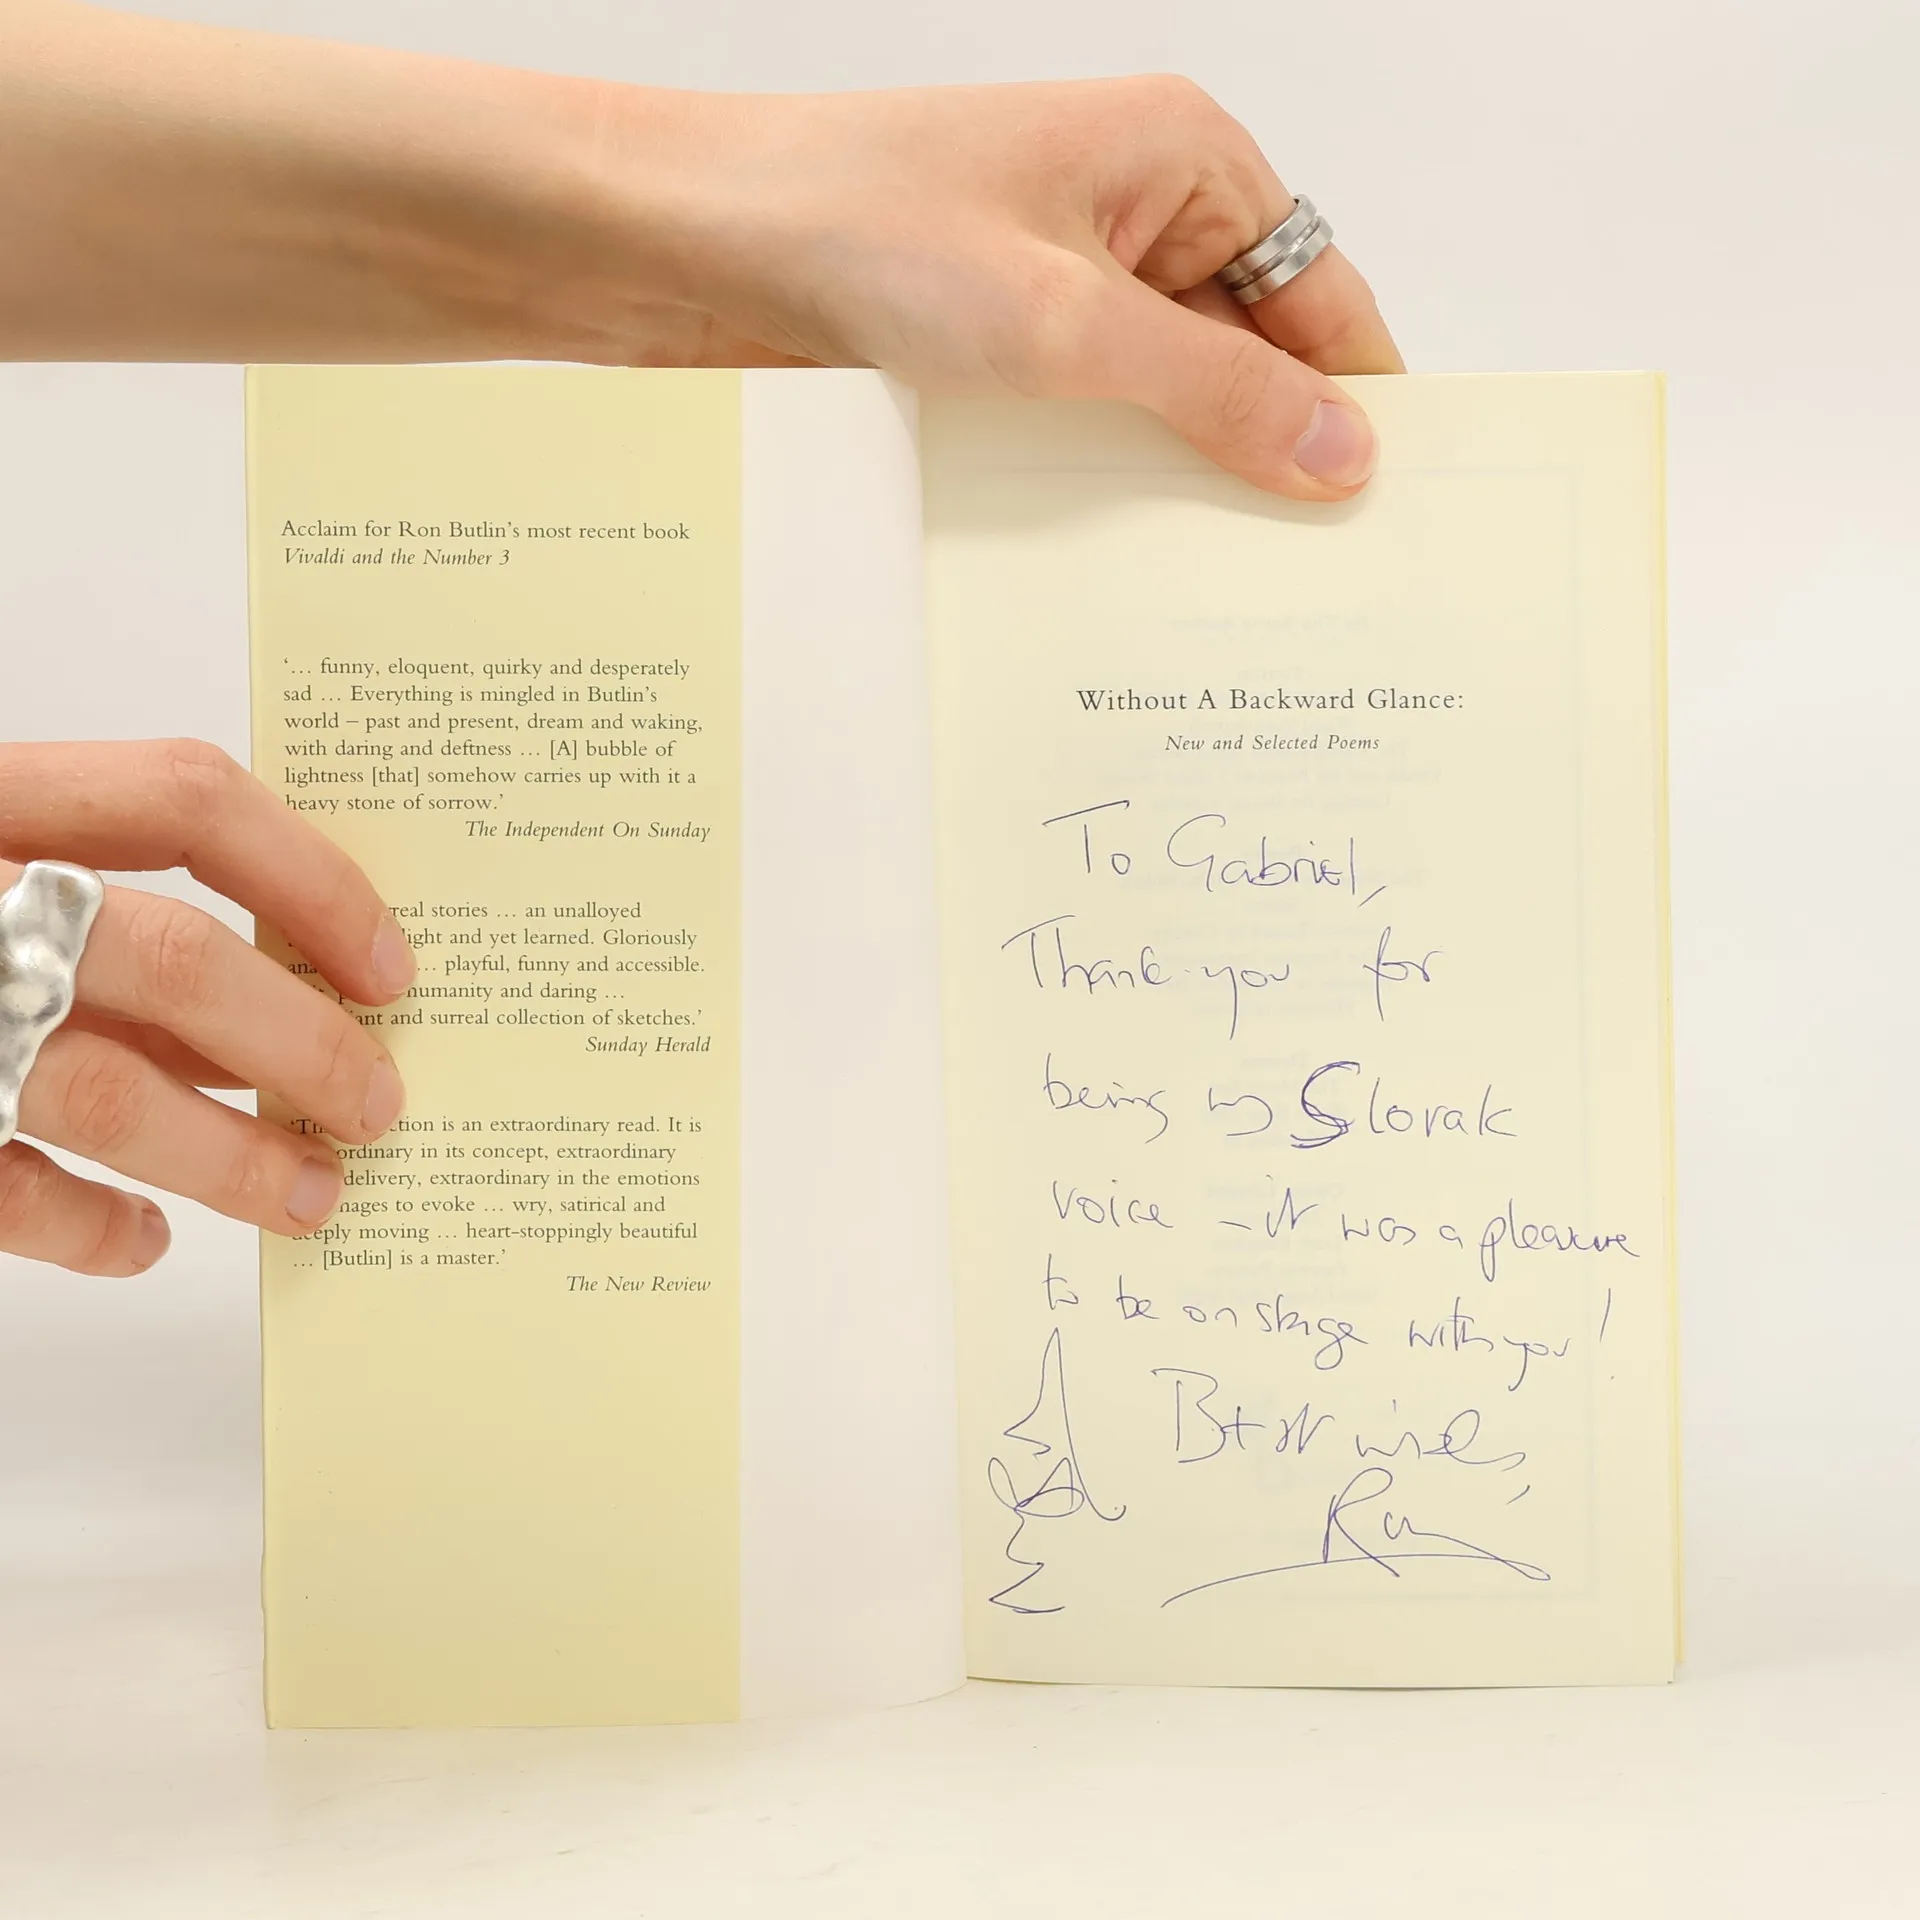 Acclaim for Ron Butlin's most recent book
Vivaldi and the Number 3
'… funny, eloquent, quirky and desperately
sad … Everything is mingled in Butlin's
world – past and present, dream and waking,
with daring and deftness … [A] bubble of
lightness [that] somehow carries up with it a
heavy stone of sorrow.'
The Independent On Sunday
real stories … an unalloyed
light and yet learned. Gloriously
… playful, funny and accessible.
humanity and daring …
and surreal collection of sketches.'
Sunday Herald
is an extraordinary read. It is
in its concept, extraordinary
delivery, extraordinary in the emotions
to evoke … wry, satirical and
deeply moving … heart-stoppingly beautiful
… [Butlin] is a master.'
The New Review
Without A Backward Glance:
New and Selected Poems
To Gabriel,
Thank you for
being my Slovak
voice – it was a pleasure
to be on stage with you!
Best wishes,
Ron